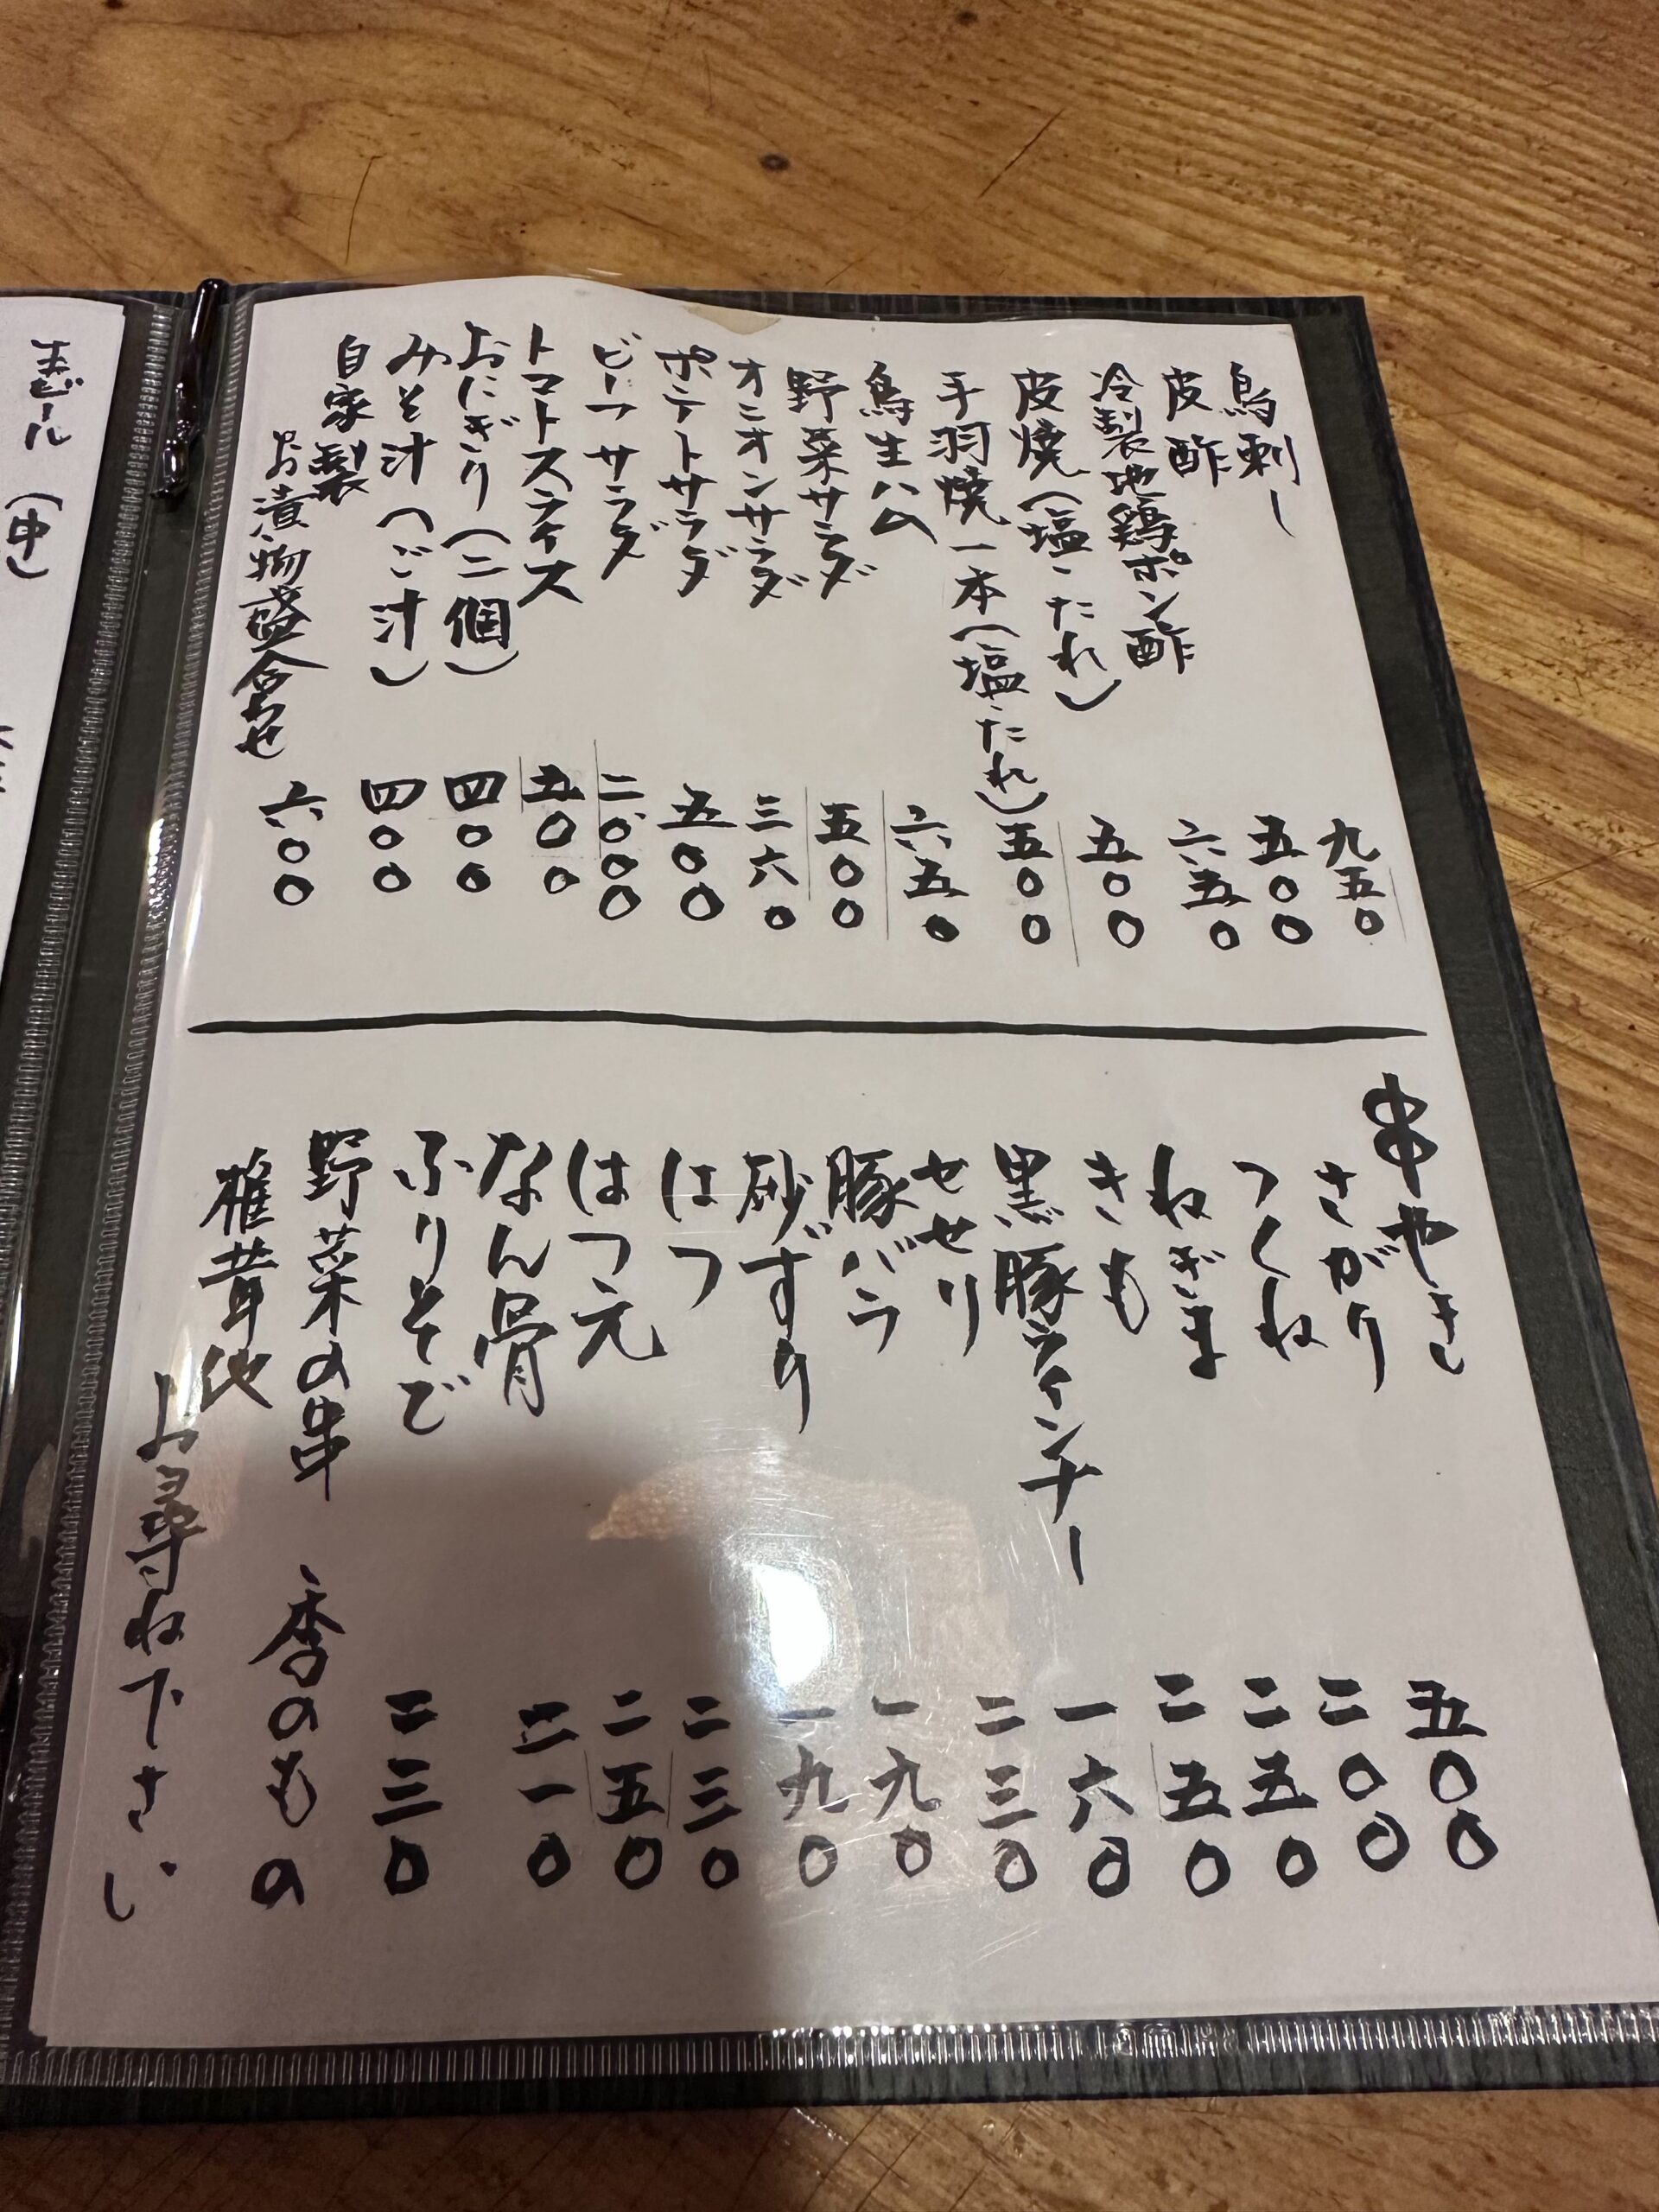 鳥刺し 九五〇
皮酢 五〇〇
冷製地鶏ポン酢 六五〇
皮焼(塩・たれ) 五〇〇
手羽焼一本(塩・たれ) 五〇〇
鳥生ハム 六五〇
野菜サラダ 五〇〇
オニオンサラダ 三六〇
ポテトサラダ 五〇〇
ビーフサラダ 二、〇〇〇
トマトスライス 五〇〇
おにぎり(二個) 四〇〇
みそ汁(ご汁) 四〇〇
自家製
お漬物盛合わせ 六〇〇
串やき
さがり 五〇〇
つくね 二〇〇
ねぎま 二五〇
きも 二五〇
黒豚ウインナー 一六〇
せせり 二三〇
豚バラ 一九〇
砂ずり 一九〇
はつ 二三〇
はつ元 二五〇
なん骨 二一〇
ふりそで 二三〇
野菜の串 季のもの
椎茸他
お尋ね下さい
生ビール(中)